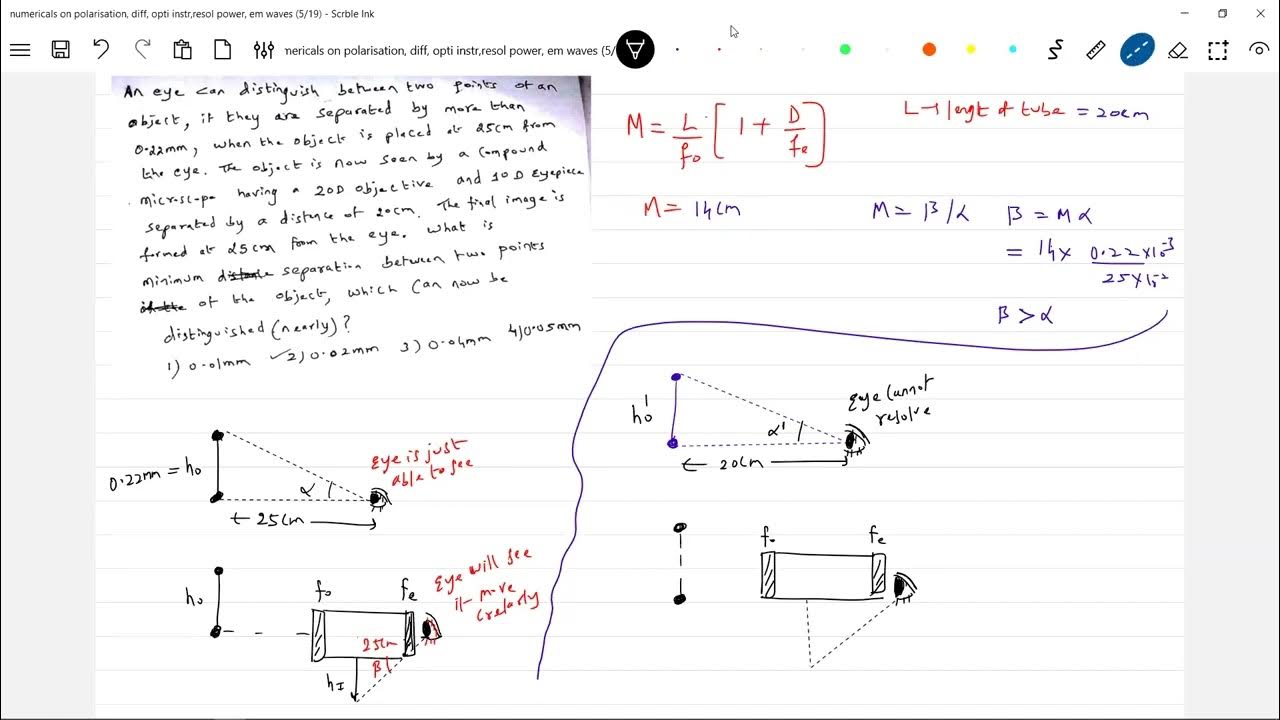 numericals on polarisation, diff, opti instr,resol power, em waves (5/19) - Scrble Ink
nericals on polarisation, diff, opti instr,resol power, em waves (5/
An eye can distinguish between two points of an
object, if they are separated by more than
0.22mm, when the object is placed at 25cm from
the eye. The object is now seen by a compound
microscope having a 20D objective and 10D Eyepiece
separated by a distance of 20cm. The final image is
formed at 25cm from the eye. What is
minimum separation between two points
of the object, which can now be
distinguished (nearly)?
1) 0.01mm ✓2) 0.02mm 3) 0.04mm 4) 0.05mm
M = L/fo [ 1 + D/fe ]
L → lengt of tube = 20cm
M = 14cm
M = β/α β = M α
= 14 × 0.22×10⁻³ / 25×10⁻²
β > α
0.22mm = ho
α
← 25cm →
Eye is just
able to see
ho' α'
← 20cm →
Eye cannot
resolve
ho fo fe
Eye will see
it more
clearly
25cm
β
hI
fo fe